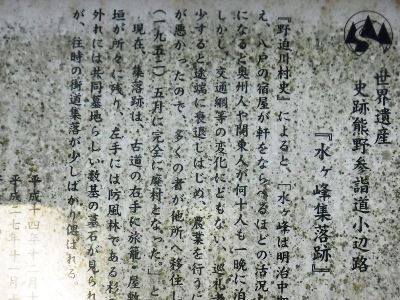 世界遺産
史跡熊野参詣道小辺路
『水ヶ峰集落跡』
『野迫川村史』によると、「水ヶ峰は明治中
え、八戸の宿屋が軒をならべるほどの活況
になると奥州人や関東人が何十人も一晩に泊
しかし、交通網等の変化にともない、巡礼者
少すると途端に衰退しはじめ、農業を行うに
が悪かったので、多くの者が他所へ移住し
(一九五二)五月に完全に廃村となった。」と
現在、集落跡は、古道の右手に旅籠・屋敷
垣が所々に残り、左手には防風林である杉
外れには共同墓地らしい数基の墓石が見られ
が、往時の街道集落が少しばかり偲ばれる。
平成十四年十二月十
平成二七年十一月十